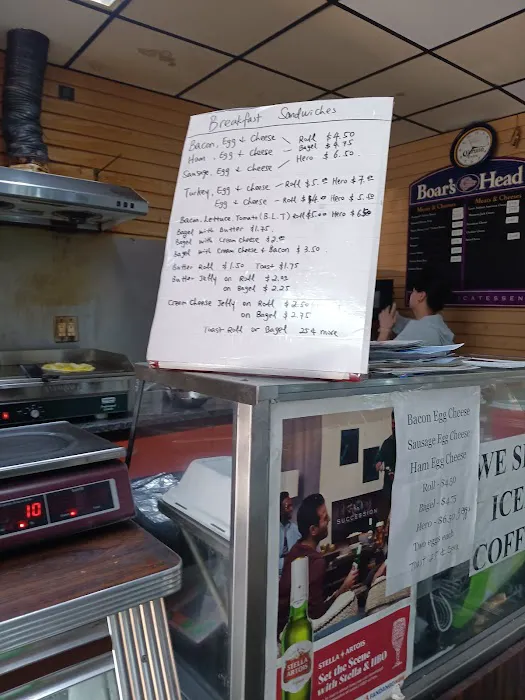 Breakfast Sandwiches
Bacon, Egg & Cheese Roll $4.50
Ham, Egg & Cheese Bagel $4.75
Sausage, Egg & Cheese Hero $6.50
Turkey, Egg & Cheese - Roll $5.00 Hero $7.00
Egg & Cheese - Roll $4.00 Hero $5.50
Bacon, Lettuce, Tomato (B.L.T) Roll $5.00 Hero $6.50
Bagel with Butter $1.75
Bagel with Cream Cheese $2.50
Bagel with Cream Cheese & Bacon $3.50
Butter Roll $1.50 Toast $1.75
Butter Jelly on Roll $2.00
on Bagel $2.25
Cream Cheese Jelly on Roll $2.50
on Bagel $2.75
Toast Roll or Bagel 25¢ more
Boar's Head
Meats & Cheeses
Meats & Cheeses
DELICATESSEN
10
Bacon Egg Cheese
Sausage Egg Cheese
Ham Egg Cheese
Roll - $4.50
Bagel - $4.75
Hero - $6.50
Two eggs each
WE SE
ICE
COFF
SUCCESSION
STELLA ARTOIS
STELLA ARTOIS
Set the Scene
with Stella & HBO